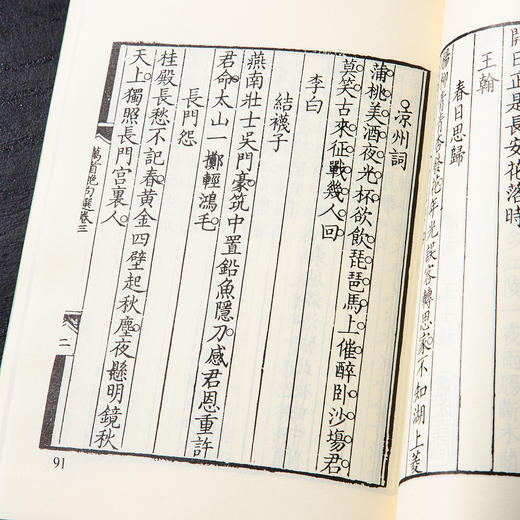 開日正是長安花落時
王翰
春日思歸
楊柳青青杏發花年光誤客轉思家不知湖上菱
涼州詞
蒲桃美酒夜光杯欲飲琵琶馬上催醉卧沙場君
莫笑古來征戰幾人回
李白
結襪子
燕南壯士吳門豪筑中置鉛魚隱刀感君恩重許
君命太山一擲輕鴻毛
長門怨
桂殿長愁不記春黃金四壁起秋塵夜懸明鏡秋
天上獨照長門宮裏人
萬首絶句選卷三
二
91